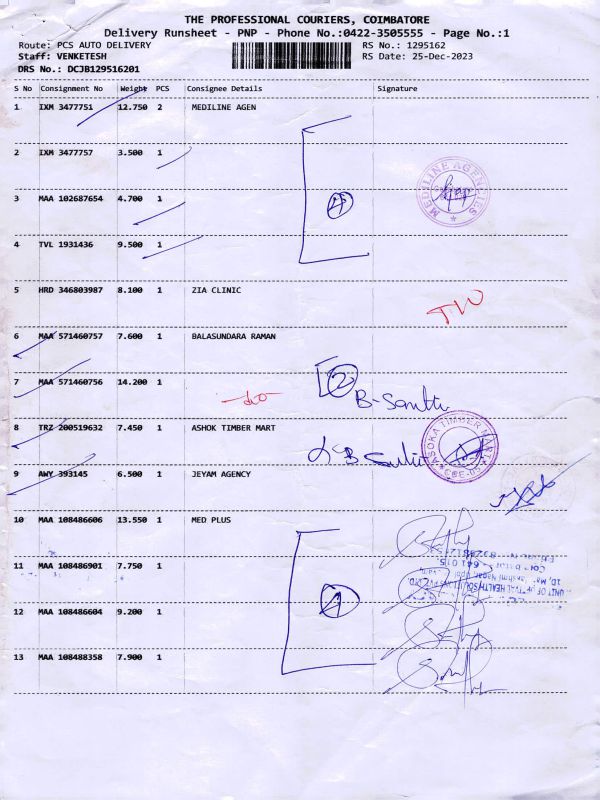 THE PROFESSIONAL COURIERS, COIMBATORE
Delivery Runsheet - PNP - Phone No.:0422-3505555 - Page No.:1
Route: PCS AUTO DELIVERY RS No.: 1295162
Staff: VENKETESH RS Date: 25-Dec-2023
DRS No.: DCJB129516201
S No Consignment No Weight PCS Consignee Details Signature
1 IXM 3477751 12.750 2 MEDILINE AGEN
2 IXM 3477757 3.500 1
MEDILINE AGENCIES
3 MAA 102687654 4.700 1 4
4 TVL 1931436 9.500 1
5 HRD 346803987 8.100 1 ZIA CLINIC
6 MAA 571460757 7.600 1 BALASUNDARA RAMAN
7 MAA 571460756 14.200 1 2
8 TRZ 200519632 7.450 1 ASHOK TIMBER MART
ASOKA TIMBER MART
9 AWY 393145 6.500 1 JEYAM AGENCY
10 MAA 108486606 13.550 1 MED PLUS
11 MAA 108486901 7.750 1
12 MAA 108486604 9.200 1 4
13 MAA 108488358 7.900 1